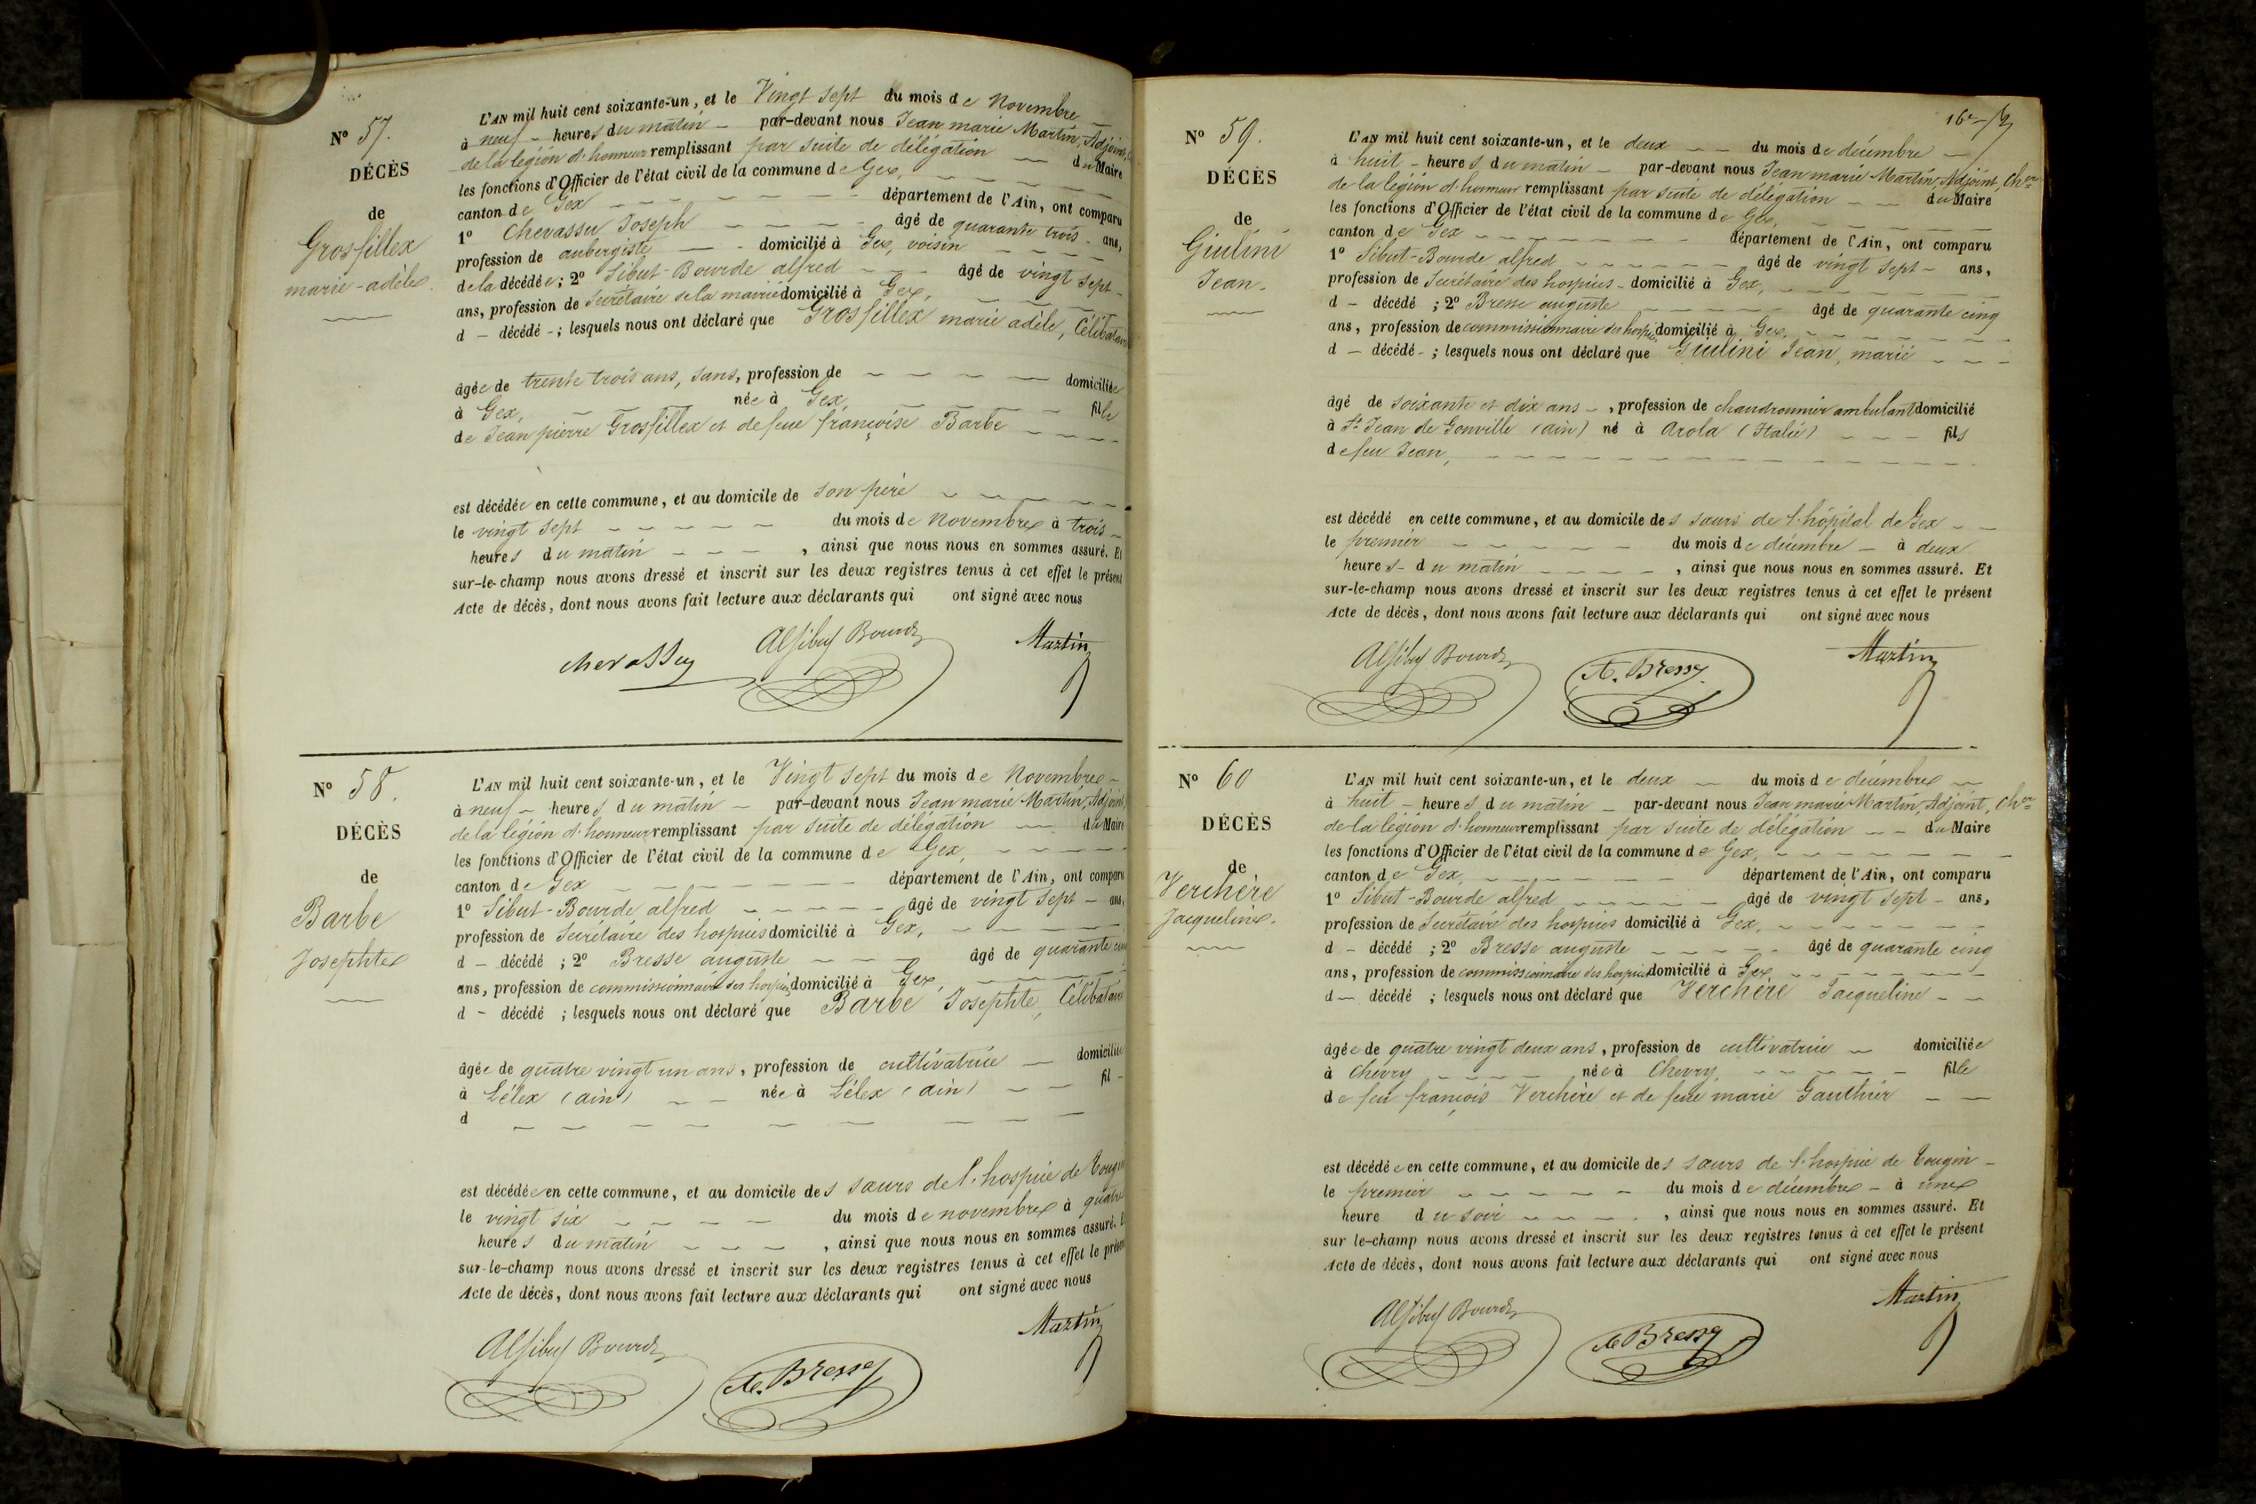 N° 57.
DÉCÈS
de
Grosfillex
marie-adèle.
L'AN mil huit cent soixante-un, et le Vingt sept du mois de Novembre
à neuf heures du matin par-devant nous Jean marie Martin, Adjoint,
de la légion d'honneur remplissant par suite de délégation du Maire
les fonctions d'Officier de l'état civil de la commune de Gex,
canton de Gex département de l'Ain, ont comparu
1° Chevassu Joseph âgé de quarante trois ans,
profession de aubergiste domicilié à Gex, voisin
de la décédée; 2° Sibut-Bourde alfred âgé de vingt sept
ans, profession de Secrétaire de la mairie domicilié à Gex,
d décédé ; lesquels nous ont déclaré que Grosfillex marie adèle, Célibataire
âgée de trente trois ans, sans, profession de domiciliée
à Gex, née à Gex, fille
de Jean pierre Grosfillex et de feue françoise Barbe
est décédée en cette commune, et au domicile de son père
le vingt sept du mois de Novembre à trois
heures du matin , ainsi que nous nous en sommes assuré. Et
sur-le-champ nous avons dressé et inscrit sur les deux registres tenus à cet effet le présent
Acte de décès, dont nous avons fait lecture aux déclarants qui ont signé avec nous
chevassu Al Sibut Bourde Martin
N° 58.
DÉCÈS
de
Barbe
Josephte
L'AN mil huit cent soixante-un, et le Vingt sept du mois de Novembre
à neuf heures du matin par-devant nous Jean marie Martin, Adjoint,
de la légion d'honneur remplissant par suite de délégation du Maire
les fonctions d'Officier de l'état civil de la commune de Gex,
canton de Gex département de l'Ain, ont comparu
1° Sibut-Bourde alfred âgé de vingt sept ans,
profession de Secrétaire des hospices domicilié à Gex,
d décédé ; 2° Bresse auguste âgé de quarante cinq
ans, profession de commissionnaire des hospices domicilié à Gex,
d décédé ; lesquels nous ont déclaré que Barbe Josephte, Célibataire
âgée de quatre vingt un ans, profession de cultivatrice domiciliée
à Lélex (ain) née à Lélex (ain) fil
d
est décédée en cette commune, et au domicile des sœurs de l'hospice de Tougin
le vingt six du mois de novembre à quatre
heures du matin , ainsi que nous nous en sommes assuré. Et
sur-le-champ nous avons dressé et inscrit sur les deux registres tenus à cet effet le présent
Acte de décès, dont nous avons fait lecture aux déclarants qui ont signé avec nous
Al Sibut Bourde A. Bresse Martin
16e
N° 59.
DÉCÈS
de
Giulini
Jean.
L'AN mil huit cent soixante-un, et le deux du mois de décembre
à huit heures du matin par-devant nous Jean marie Martin, Adjoint, Cher
de la légion d'honneur remplissant par suite de délégation du Maire
les fonctions d'Officier de l'état civil de la commune de Gex,
canton de Gex département de l'Ain, ont comparu
1° Sibut-Bourde alfred âgé de vingt sept ans,
profession de Secrétaire des hospices domicilié à Gex,
d décédé ; 2° Bresse auguste âgé de quarante cinq
ans, profession de commissionnaire des hospices domicilié à Gex,
d décédé ; lesquels nous ont déclaré que Giulini Jean, marié
âgé de soixante et dix ans , profession de chaudronnier ambulant domicilié
à St Jean de Gonville (ain) né à Arola (Italie) fils
de feu Jean,
est décédé en cette commune, et au domicile des sœurs de l'hôpital de Gex
le premier du mois de décembre à deux
heures du matin , ainsi que nous nous en sommes assuré. Et
sur-le-champ nous avons dressé et inscrit sur les deux registres tenus à cet effet le présent
Acte de décès, dont nous avons fait lecture aux déclarants qui ont signé avec nous
Al Sibut Bourde A. Bresse Martin
N° 60
DÉCÈS
de
Verchère
Jacqueline.
L'AN mil huit cent soixante-un, et le deux du mois de décembre
à huit heures du matin par-devant nous Jean marie Martin, Adjoint, Cher
de la légion d'honneur remplissant par suite de délégation du Maire
les fonctions d'Officier de l'état civil de la commune de Gex,
canton de Gex, département de l'Ain, ont comparu
1° Sibut-Bourde alfred âgé de vingt sept ans,
profession de Secrétaire des hospices domicilié à Gex,
d décédé ; 2° Bresse auguste âgé de quarante cinq
ans, profession de commissionnaire des hospices domicilié à Gex,
d décédé ; lesquels nous ont déclaré que Verchère Jacqueline
âgée de quatre vingt deux ans, profession de cultivatrice domiciliée
à Chevry née à Chevry, fille
de feu françois Verchère et de feue marie Gauthier
est décédée en cette commune, et au domicile des sœurs de l'hospice de Tougin
le premier du mois de décembre à une
heure du soir , ainsi que nous nous en sommes assuré. Et
sur le-champ nous avons dressé et inscrit sur les deux registres tenus à cet effet le présent
Acte de décès, dont nous avons fait lecture aux déclarants qui ont signé avec nous
Al Sibut Bourde A. Bresse Martin